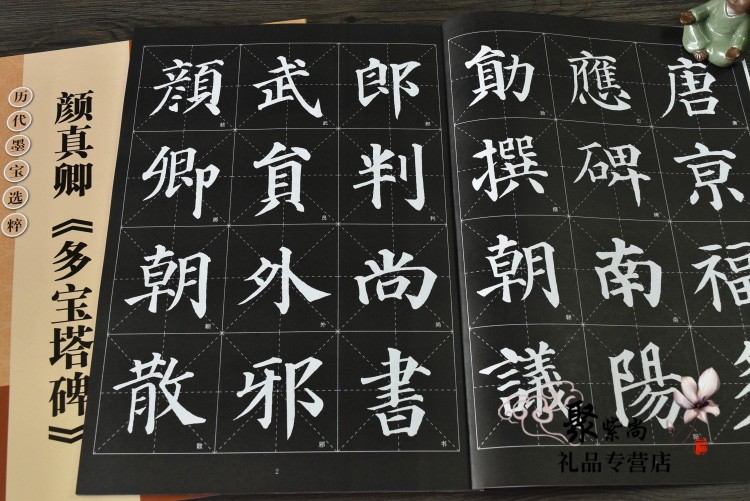 唐亰福
應碑南陽
勛撰朝議
郎判尚書
武貟外邪
顏卿朝散
2
颜真卿《多宝塔碑》
历代墨宝选粹
聚紫尚
礼品专营店